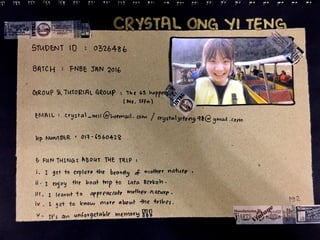 CRYSTAL ONG YI TENG
STUDENT ID : 0326486
BATCH : FNBE JAN 2016
GROUP & TUTORIAL GROUP : The 65
(Ms. Iffa)
EMAIL : crystal_ @hotmail.com / crystalyiteng98@gmail.com
Hp NUMBER : 017-6560428
5 FUN THINGS ABOUT THE TRIP :
i. I get to explore the beauty of mother nature.
ii. I enjoy the boat trip to Lata Berkoh.
iii. I learnt to appreciate mother nature.
iv. I get to know more about the tribes.
v. It's an unforgettable memory !!!